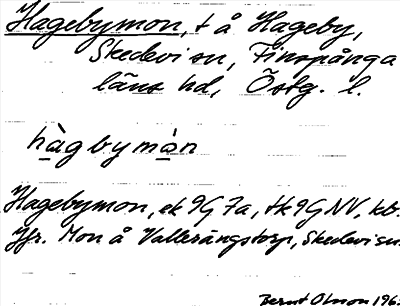 Hagebymon, t å Hageby,
Skedevi sn, Finspånga
läns hd, Östg. l.
hàgbymȧn
Hagebymon, ek 9G 7a, tk 9G NV, kb.
Jfr. Mon å Vallerängstorp, Skedevi sn.
Bernt Olson 196